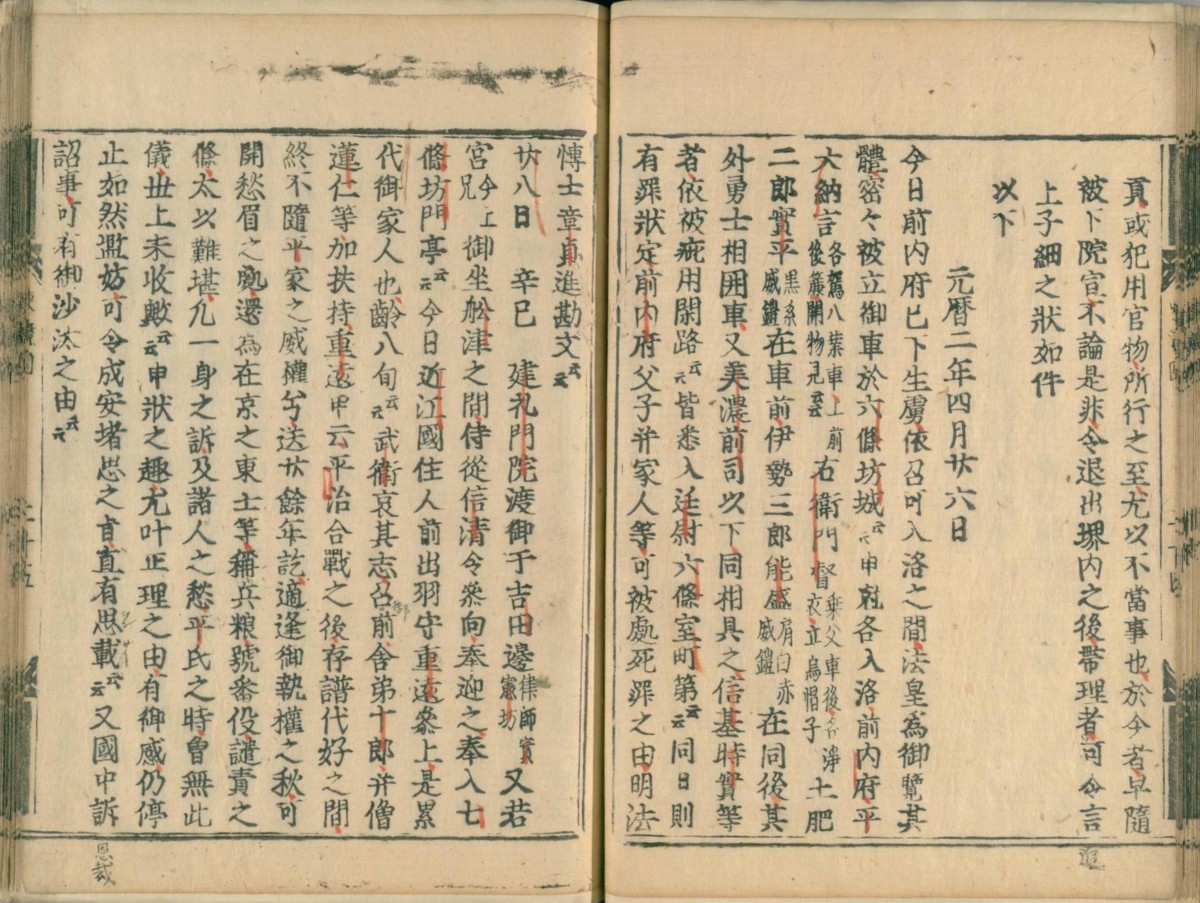 貢或犯用官物所行之至尤以不當事也於今者早隨
被下院宣不論是非令退出堺内之後帶理者可令言
上子細之狀如件
以下
元暦二年四月廿六日
今日前内府已下生虜依召可入洛之間法皇為御覽其
體密々被立御車於六條坊城云云申剋各入洛前内府平
大納言各駕八葉車上前後簾開物見云云右衛門督乘父車後各淨衣立烏帽子土肥
二郎實平黒糸威鎧在車前伊勢三郎能盛肩白赤威鎧在同後其
外勇士相囲車又美濃前司以下同相具之信基時實等
者依被疵用閑路云云皆悉入廷尉六條室町第云云同日則
有罪狀定前内府父子并家人等可被處死罪之由明法
博士章貞進勘文云云
廿八日 辛巳 建礼門院渡御于吉田邊律師實憲坊又若
宮今上兄御坐舩津之間侍從信清令參向奉迎之奉入七
條坊門亭云云今日近江國住人前出羽守重遠參上是累
代御家人也齡八旬云云武衛哀其志召御前舍弟十郎并僧
蓮仁等加扶持重遠申云平治合戰之後存譜代好之間
終不隨平家之威權兮送廿餘年訖適逢御執權之秋可
開愁眉之處還為在京之東士等稱兵粮號番役譴責之
條太以難堪凡一身之訴及諸人之愁平氏之時曾無此
儀世上未收歟云云申狀之趣尤叶正理之由有御感仍停
止如然濫妨可令成安堵思之旨直有恩裁云云又國中訴
詔事可有御沙汰之由云云
恩裁